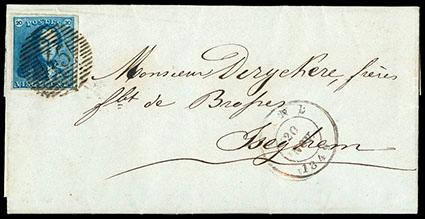 POSTES
Monsieur Deryckere, frères
fbt de Brosses
Iseghem
20
184